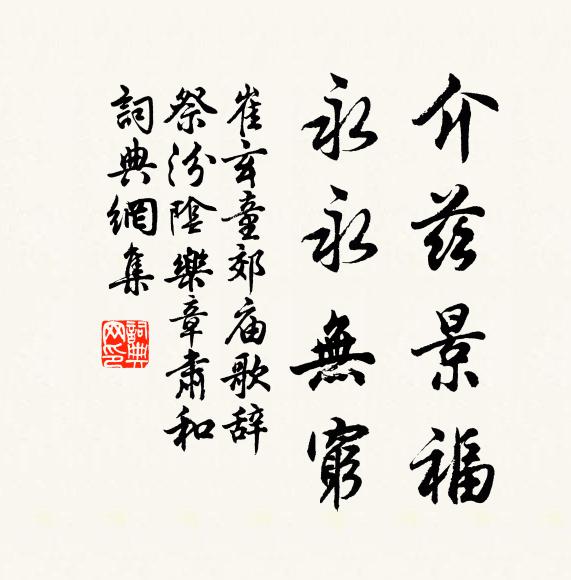 介茲景福
永永無窮
崔玄童郊庙歌辞
祭汾陰樂章肅和
詞典網集
詞典
网印